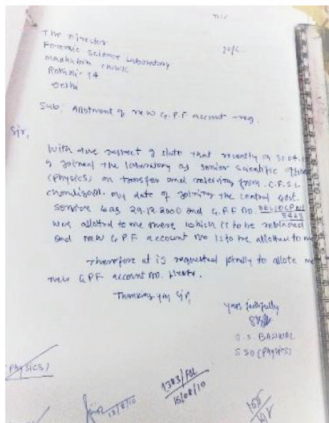 The Director
Forensic Science Laboratory
Madhuban Chowk
Rohini 14
Delhi
Sub. Allotment of new G.P.F account -reg.
Sir,
With due respect I state that recently on
I joined the laboratory as Senior Scientific
(Physics) on transfer and relieving from C.F.S.L
Chandigarh. My date of joining the central Govt.
Service was 29.12.2000 and G.P.F no.
was allotted to me there which is to be replaced
and new G.P.F account no is to be allotted to me
Therefore it is requested kindly to allote me
new G.P.F account no. please.
Thanking you Sir,
Yours faithfully
SSO (Physics)
(Physics)
1383/FSL
16/08/10